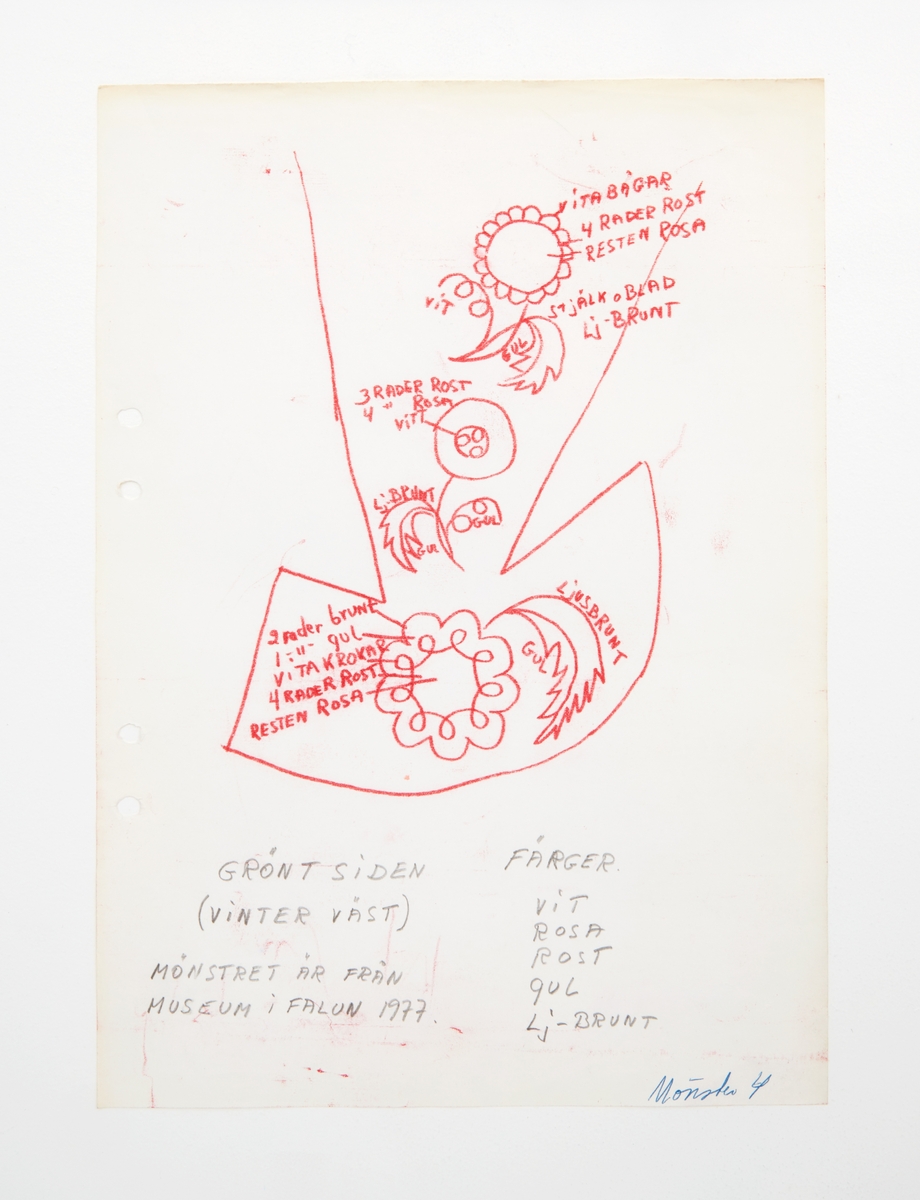 VITA BÅGAR
4 RADER ROST
RESTEN ROSA
VIT
STJÄLK o BLAD
Lj-BRUNT
GUL
3 RADER ROST
4 -"- ROSA
VITT
Lj-BRUNT
GUL
GUL
LJUSBRUNT
GUL
2 rader brunt
1 -"- gul
VITA KROKAR
4 RADER ROST
RESTEN ROSA
GRÖNT SIDEN
(VINTER VÄST)
MÖNSTRET ÄR FRÅN
MUSEUM I FALUN 1977.
FÄRGER.
VIT
ROSA
ROST
GUL
Lj-BRUNT
Mönster 4